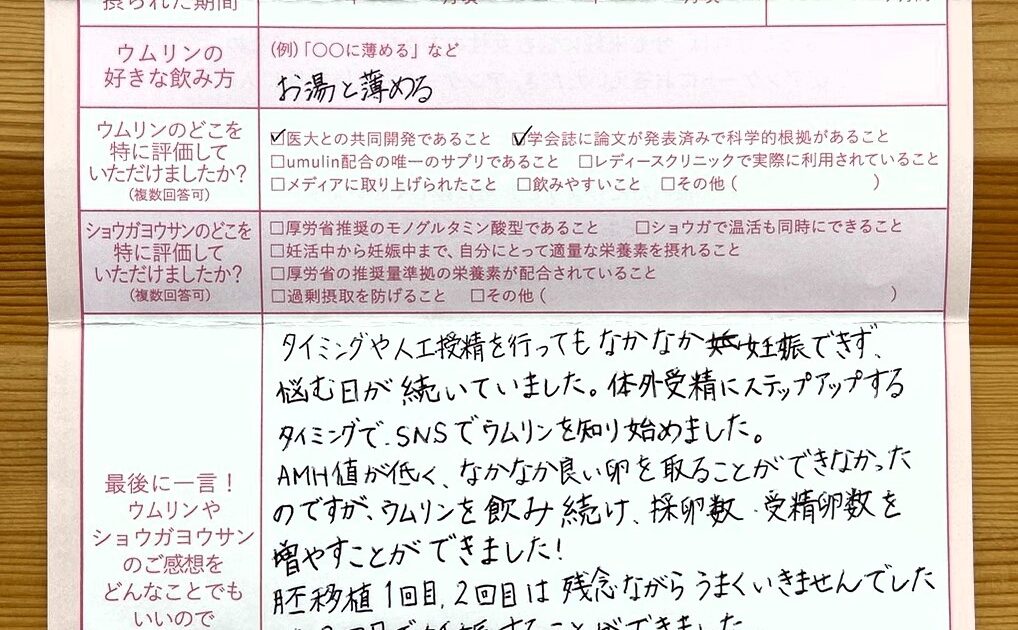 摂られた期間
ウムリンの
好きな飲み方
(例)「〇〇に薄める」など
お湯と薄める
ウムリンのどこを
特に評価して
いただけましたか?
(複数回答可)
☑医大との共同開発であること ☑学会誌に論文が発表済みで科学的根拠があること
□umulin配合の唯一のサプリであること □レディースクリニックで実際に利用されていること
□メディアに取り上げられたこと □飲みやすいこと □その他( )
ショウガヨウサンのどこを
特に評価して
いただけましたか?
(複数回答可)
□厚労省推奨のモノグルタミン酸型であること □ショウガで温活も同時にできること
□妊活中から妊娠中まで、自分にとって適量な栄養素を摂れること
□厚労省の推奨量準拠の栄養素が配合されていること
□過剰摂取を防げること □その他( )
最後に一言!
ウムリンや
ショウガヨウサン
のご感想を
どんなことでも
いいので
タイミングや人工授精を行ってもなかなか妊娠できず、
悩む日が続いていました。体外受精にステップアップする
タイミングで、SNSでウムリンを知り始めました。
AMH値が低く、なかなか良い卵を取ることができなかった
のですが、ウムリンを飲み続け、採卵数・受精卵数を
増やすことができました!
胚移植1回目、2回目は残念ながらうまくいきませんでした
することができました